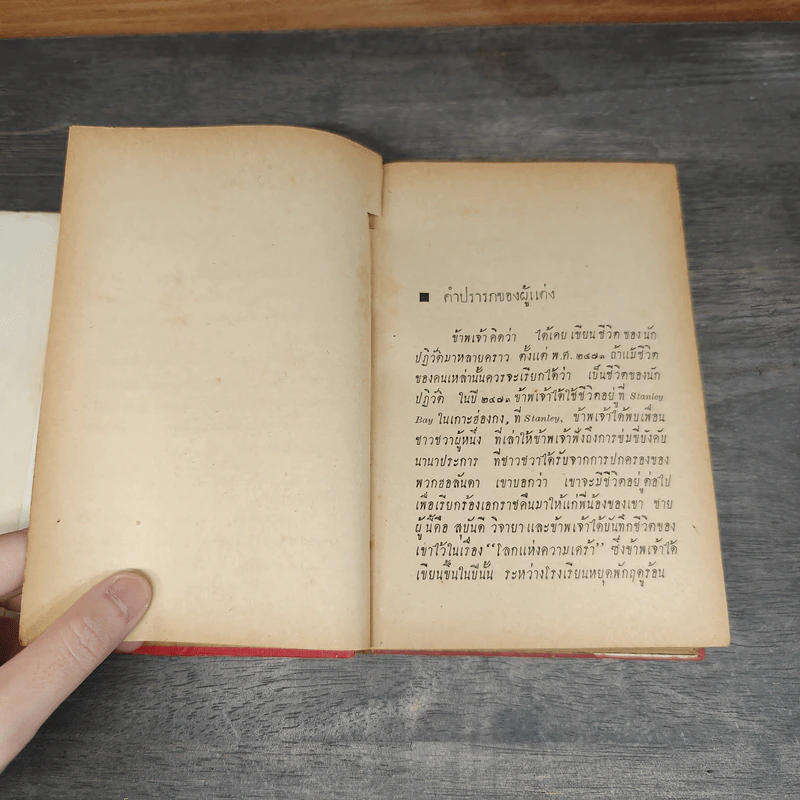 ■ คำปรารภของผู้แต่ง
ข้าพเจ้าคิดว่า ได้เคยเขียนชีวิตของนัก
ปฏิวัติมาหลายคราว ตั้งแต่ พ.ศ. ๒๔๗๑ ถ้าแม้ชีวิต
ของคนเหล่านั้นควรจะเรียกได้ว่า เป็นชีวิตของนัก
ปฏิวัติ ในปี ๒๔๗๑ ข้าพเจ้าได้ใช้ชีวิตอยู่ที่ Stanley
Bay ในเกาะฮ่องกง, ที่ Stanley, ข้าพเจ้าได้พบเพื่อน
ชาวชวาผู้หนึ่ง ที่เล่าให้ข้าพเจ้าฟังถึงการข่มขี่บังคับ
นานาประการ ที่ชาวชวาได้รับจากการปกครองของ
พวกฮอลันดา เขาบอกว่า เขาจะมีชีวิตอยู่ต่อไป
เพื่อเรียกร้องเอกราชคืนมาให้แก่พี่น้องของเขา ชาย
ผู้นี้คือ สุบันดี วิจายา และข้าพเจ้าได้บันทึกชีวิตของ
เขาไว้ในเรื่อง “โลกแห่งความเศร้า” ซึ่งข้าพเจ้าได้
เขียนขึ้นในปีนั้น ระหว่างโรงเรียนหยุดพักฤดูร้อน